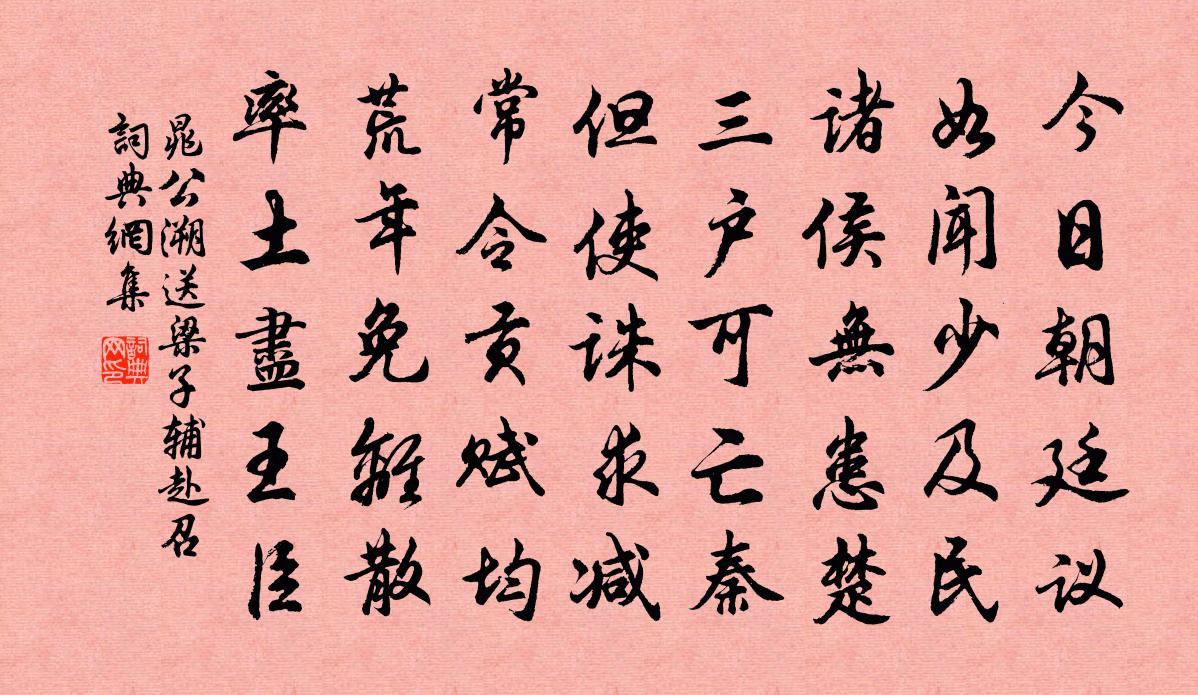 今日朝廷议
如闻少及民
諸侯無患楚
三户可亡秦
但使誅求减
常令貢赋均
荒年免離散
率土盡王臣
晁公溯送梁子辅赴召
詞典網集
詞典网印